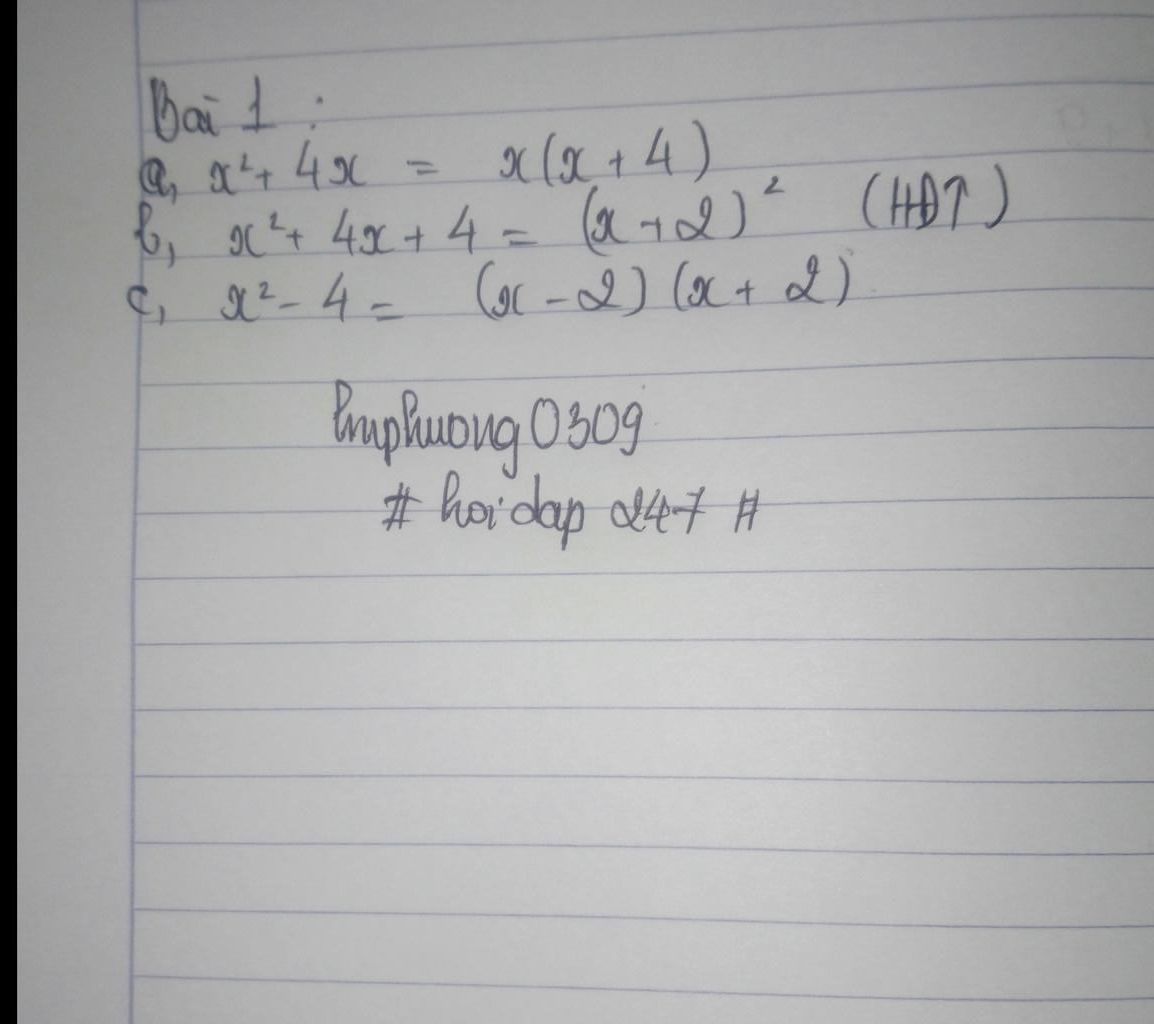 Bài 1 :
a, x² + 4x = x(x + 4)
b, x² + 4x + 4 = (x + 2)² (HĐT)
c, x² - 4 = (x - 2) (x + 2)
0309
# hoidap 247 #